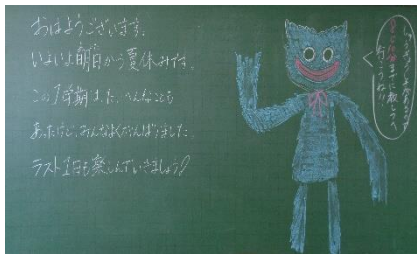 おはようございます。
いよいよ明日から夏休みです。
この1学期また、いろんなことも
あったけど、みんなよくがんばりました
ラスト1日も楽しんでいきましょう♪
までに
行こうね!!